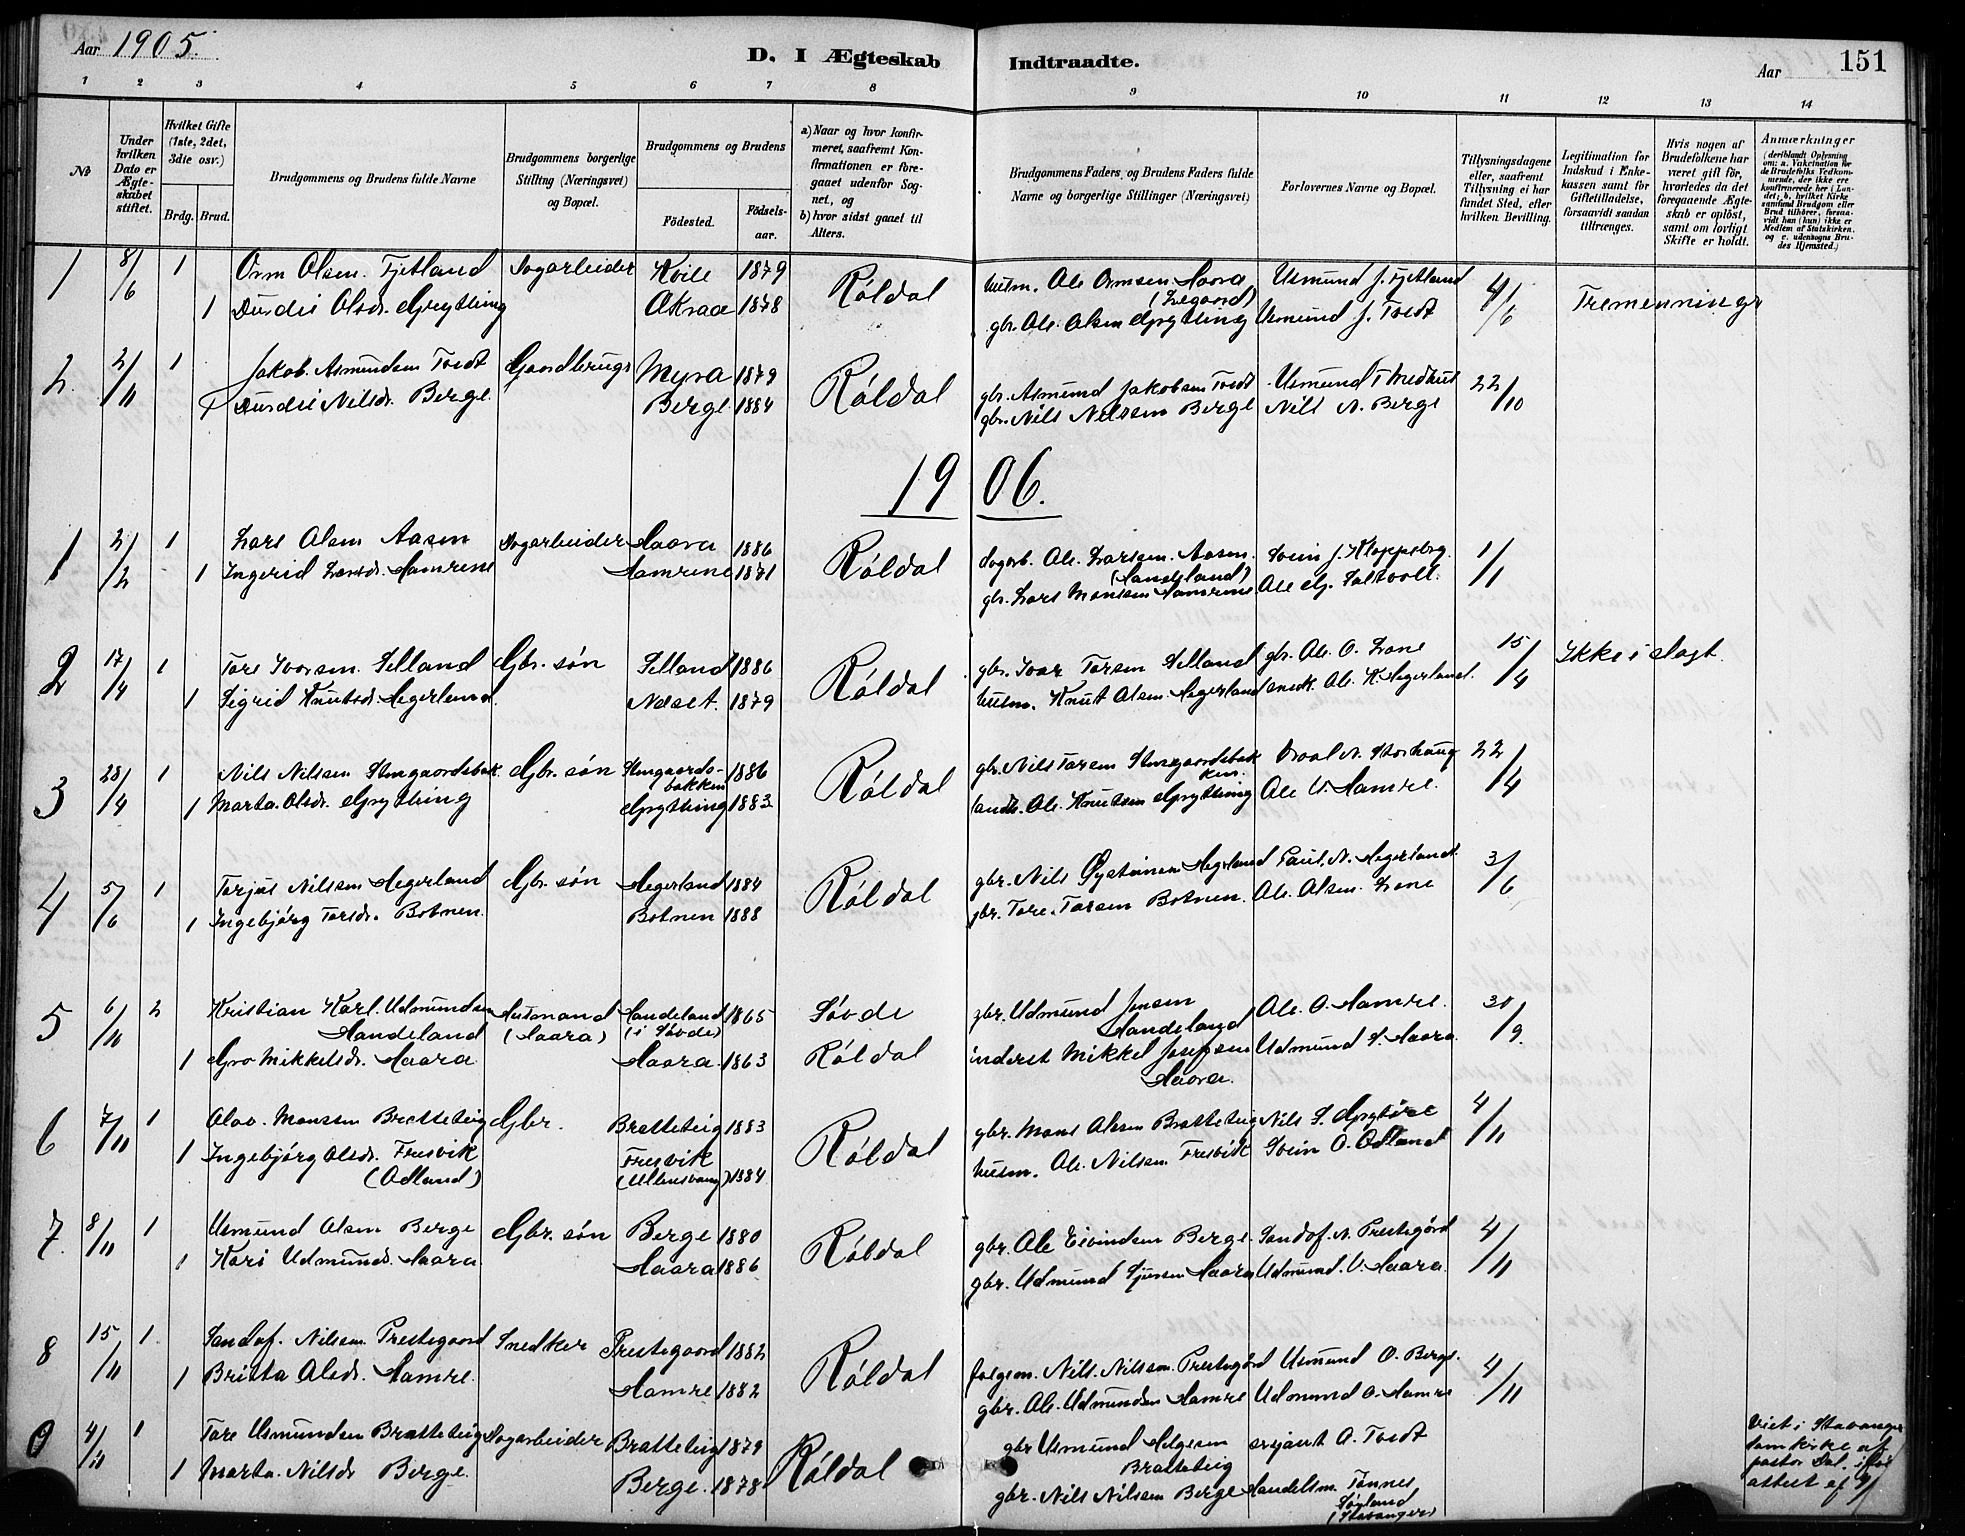 Aar 1905.
D. I Ægteskab Indtraadte.
Aar
151
1 2 3 4 5 6 7 8 9 10 11 12 13 14
No
Under hvilken Dato er Ægteskabet stiftet.
Hvilket Gifte (1ste, 2det, 3die osv.)
Brdg. Brud.
Brudgommens og Brudens fulde Navne
Brudgommens borgerlige Stilling (Næringsvei) og Bopæl.
Brudgommens og Brudens
Födested.
Födsels-aar.
a) Naar og hvor konfirmeret, saafremt Konfirmationen er foregaaet udenfor Sognet, og
b) hvor sidst gaaet til Alters.
Brudgommens Faders, og Brudens Faders fulde Navne og borgerlige Stillinger (Næringsvei)
Forlovernes Navne og Bopæl.
Tillysningsdagene eller, saafremt Tillysning ei har fundet Sted, efter hvilken Bevilling.
Legitimation for Indskud i Enkekassen samt for Giftetilladelse, forsaavidt saadan tiltrænges.
Hvis nogen af Brudefolkene har været gift för, hvorledes da det foregaaende Ægteskab er oplöst, samt om lovligt Skifte er holdt.
Anmærkninger
(deriblandt Oplysning om: a. Vakcination for de Brudefolks Vedkommende, der ikke ere konfirmerede her i Landet; b. hvilket Kirkesamfund Brudgom eller Brud tilhörer, forsaavidt han (hun) ikke er Medlem af Statskirken, og c. udensogns Brudes Hjemsted.)
1 8/6 1 Orm Olsen Fjetland Sogarbeider Kvile 1879 Røldal husm. Ole Ormsen Haara Usmund J. Fjetland 4/6 Tremenninger
1 Durdei Olsdr. Grytting Akraa 1878 gbr. Ole Olsen Grytting Usmund J. Tvedt
2. 2/11 1 Jakob Asmundsen Tvedt Gaardbrugs Myra 1879 Røldal gbr. Asmund Jakobsen Tvedt Usmund T 22/10
1 Durdei Nilsdr. Berge Berge 1884 gbr. Nils Nilssen Berge Nils N. Berge
1906.
1 2/2 1 Lars Olsen Aasen Sogarbeider Haara 1886 Røldal Sogarb. Ole Larsen Aasen Svein J. Kloppsbrg. 1/1
(Handeland)
1 Ingerid Larsdr. Hamrene Hamrene 1871 gbr. Lars Monsen Hamrene Ole
2 17/4 1 Tore Ivarsen Selland Gbr. søn Selland 1886 Røldal gbr. Ivar Torsen Selland gbr. Ole O. Lone 15/4 Ikke i slagt.
1 Sigrid Knutsdr. Hegerland Neset. 1879 husm. Knut Olsen Hegerland snedk. Ole K. Hegerland.
3 28/4 1 Nils Nilsen Stengaardsbak. Gbr. søn Stengaards-bakken 1886 Røldal gbr. Nils Torsen Stengaardsbakken Storhaug 22/4
1 Marta Olsdr. Grytting Grytting 1883 landh. Ole Knutsen Grytting Ole V. Hamre.
4 5/6 1 Torjus Nilsen Hegerland Gbr. søn Hegerland 1884 Røldal gbr. Nils Øysteinsen Hegerland Paul N. Hegerland. 3/6
1 Ingebjørg Torsdr. Botnen Botnen 1888 gbr. Tore Torsen Botnen. Ole Olsen Lone
5 6/10 2 Kristian Karl Udmundsen Handeland Husmand (Haara) Handeland (i Søvde) 1865 Søvde gbr. Udmund Jensen Handeland Ole O. Hamre. 30/9.
1 Gro Mikkelsdr. Haara Haara 1863 Røldal inderst Mikkel Josefsen Haara. Udmund S. Haara
6 7/11 1 Olav Monsen Bratteteig Gbr. Bratteteig 1883 Røldal gbr. Mons Olsen Bratteteig Nils S. Grytøre 4/11
1 Ingebjørg Olsdr. Fresvik (Odland) Fresvik (Ullensvang) 1884 husm. Ole Nilsen Fresvik Svein O. Odland
7. 8/11 1 Usmund Olsen Berge Gbr. søn Berge 1880 Røldal gbr. Ole Eivindsen Berge Sandof. N. Prestegård 4/11
1 Kari Udmunds. Haara Haara 1886 gbr. Udmund Sjursen Haara Udmund V. Haara
8 15/11 1 Sandof. Nilsen Prestegaard Snedker Prestegaard 1882 Røldal folgem. Nils Nilsen Prestegård Usmund O. Berge. 4/11
1 Britta Olsdr. Hamre. Hamre 1882 gbr. Ole Udmundsen Hamre Udmund O. Hamre
9 4/11 1 Tore Usmundsen Bratteteig Sogarbeider Bratteteig 1879 Røldal gbr Usmund Helgesen Bratteteig O. Tvedt
1 Marta Nilsdr Berge. Berge. 1878 gbr. Nils Nilsen Berge Handelsm. Tønnes Sørland (Stavanger)
Viet i Stavanger Domkirke af pastor Dal, iflg attest af